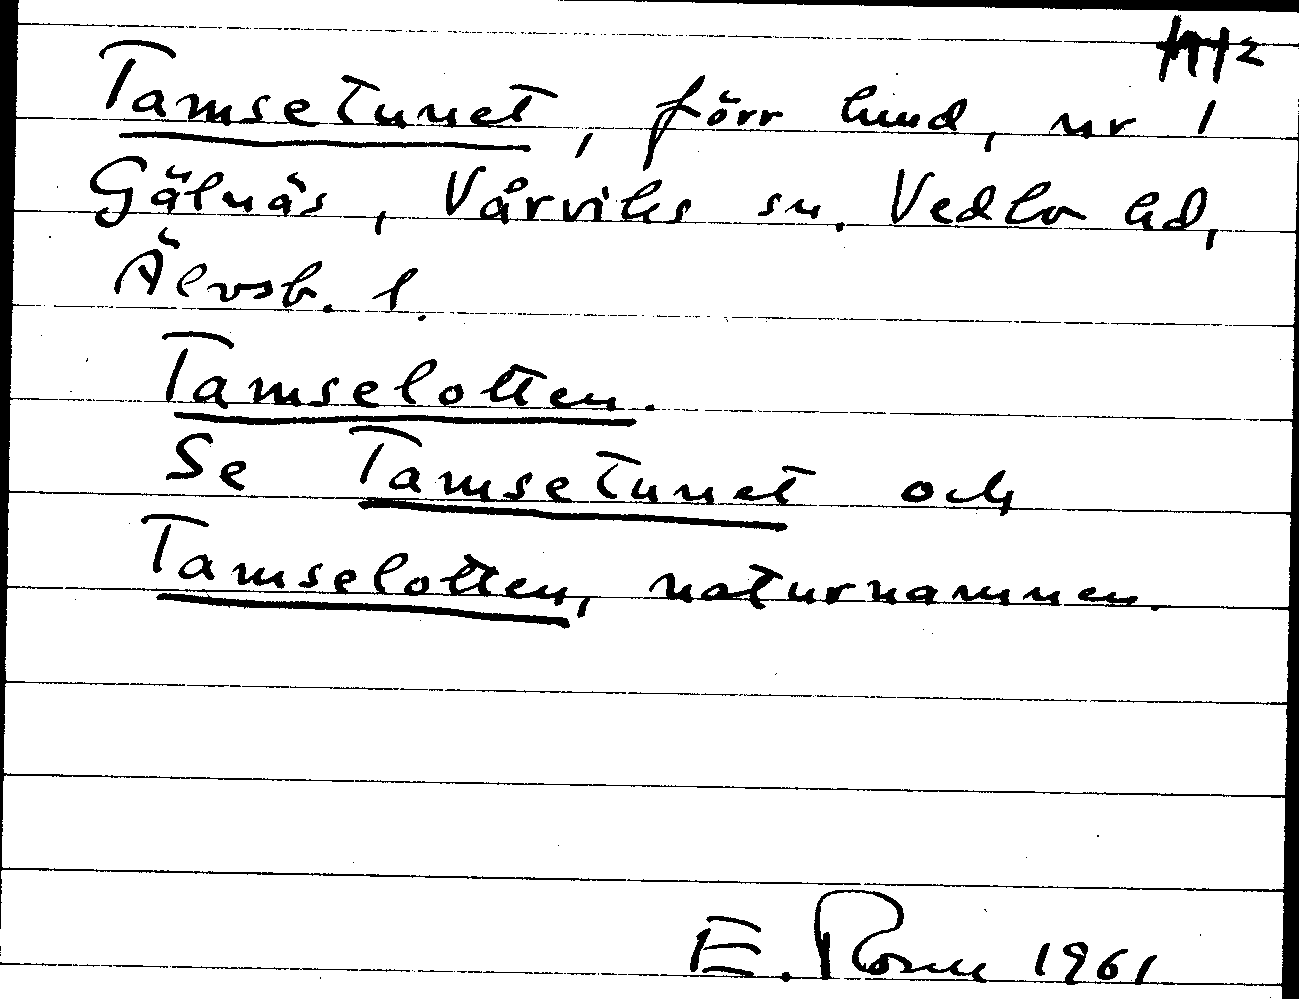 Tamsetunet, förr lund, nr 1
Gälnäs, Vårviks sn. Vedbo hd,
Älvsb. l.
Tamselotten.
Se Tamsetunet och
Tamselotten, naturnamnen.
E. 1961